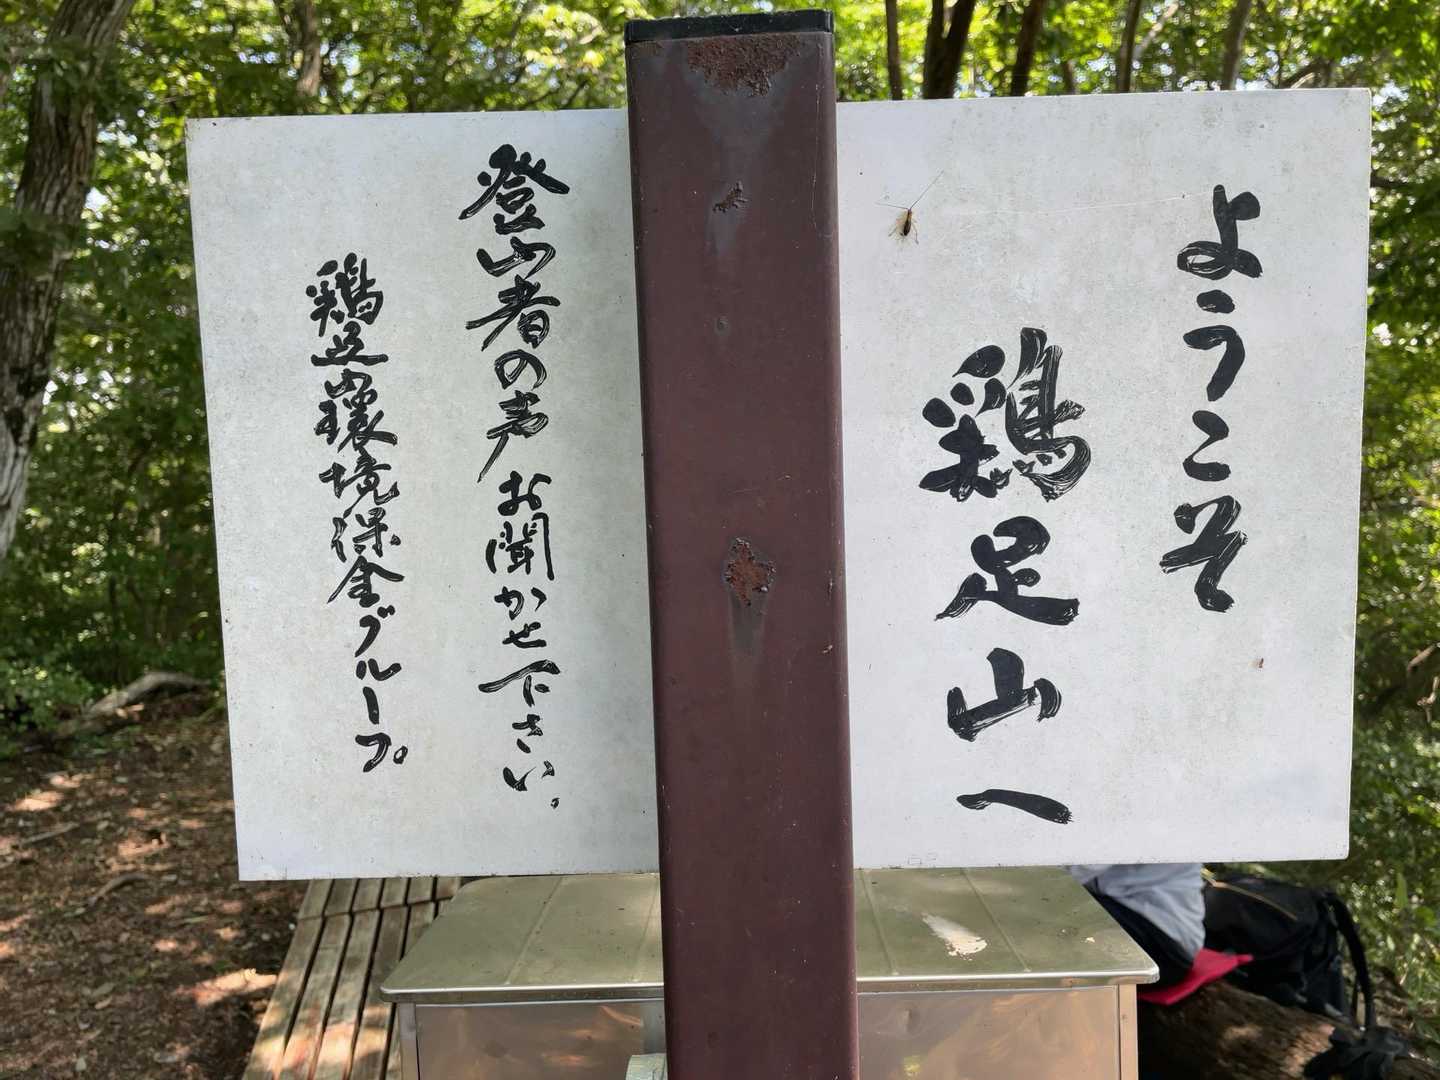 ようこそ
鶏足山へ
登山者の声お聞かせ下さい。
鶏足山環境保全グループ。